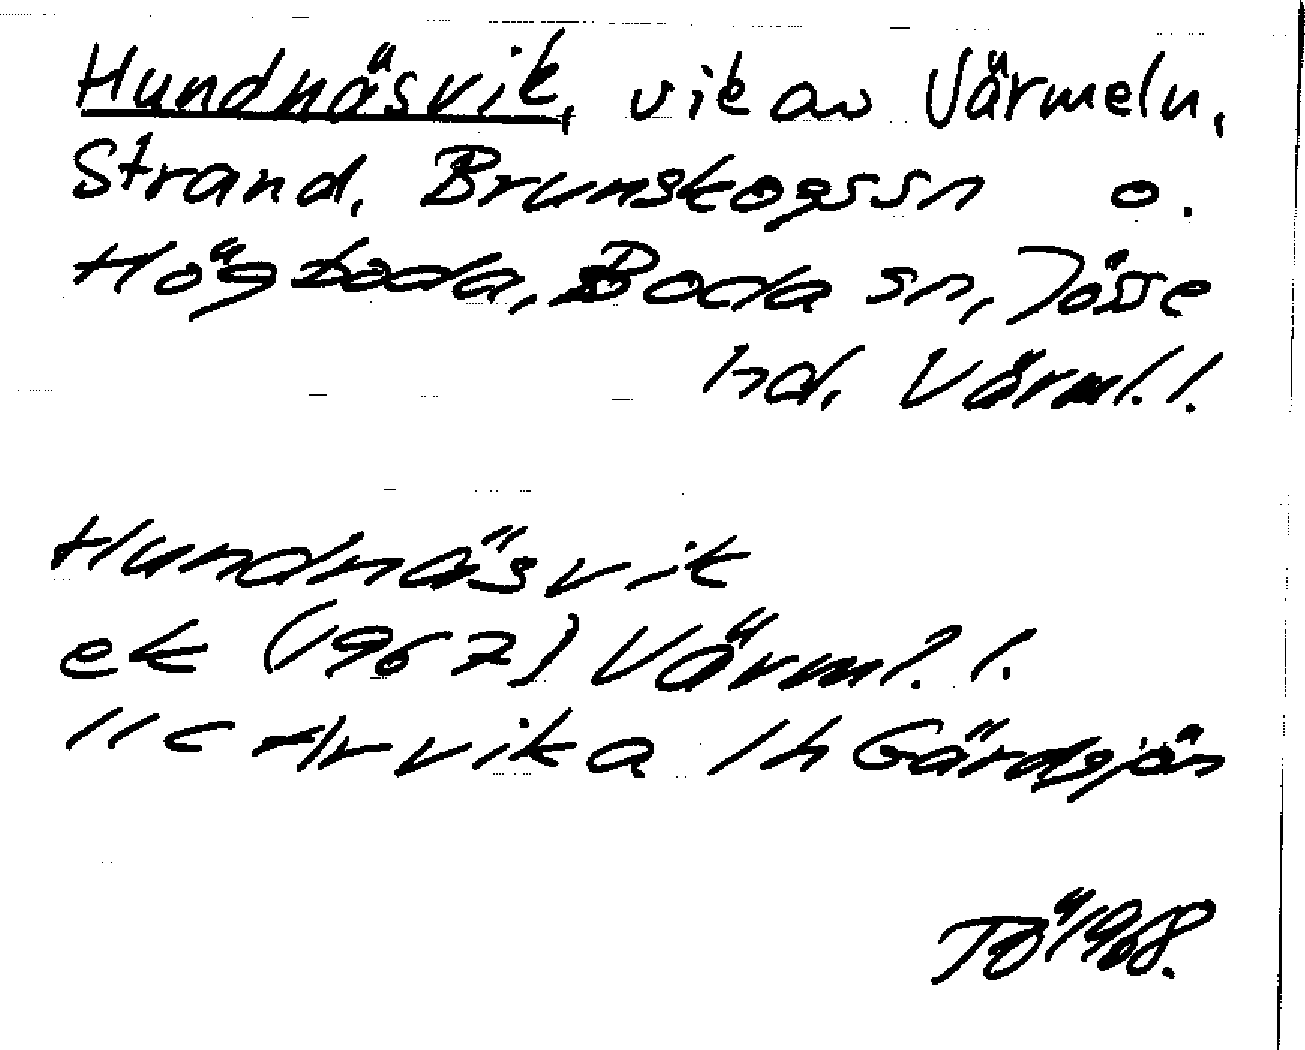 Hundnäsvik, vik av Värmeln,
Strand, Brunskogs sn o.
Högboda, Boda sn, Jösse
hd, Värml. l.
Hundnäsvik
ek (1967) Värml. l.
11 c Arvika 1 h Gårdsjön
TÖ 1968.